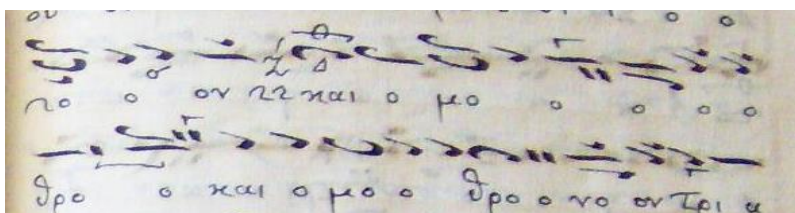 το ο ον και ο μο ο ο ο ο
θρο ο και ο μο ο θρο ο νο ον Τρι α